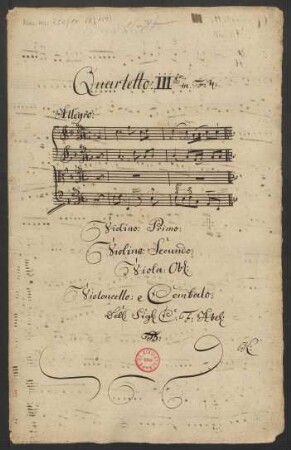 Quartetto: III in F♮
Allegro:
Violino: Primo:
Violino: Secundo:
Viola: Obl:
Violoncello: e Cembalo:
Del: Sigl: C: F: Abel: